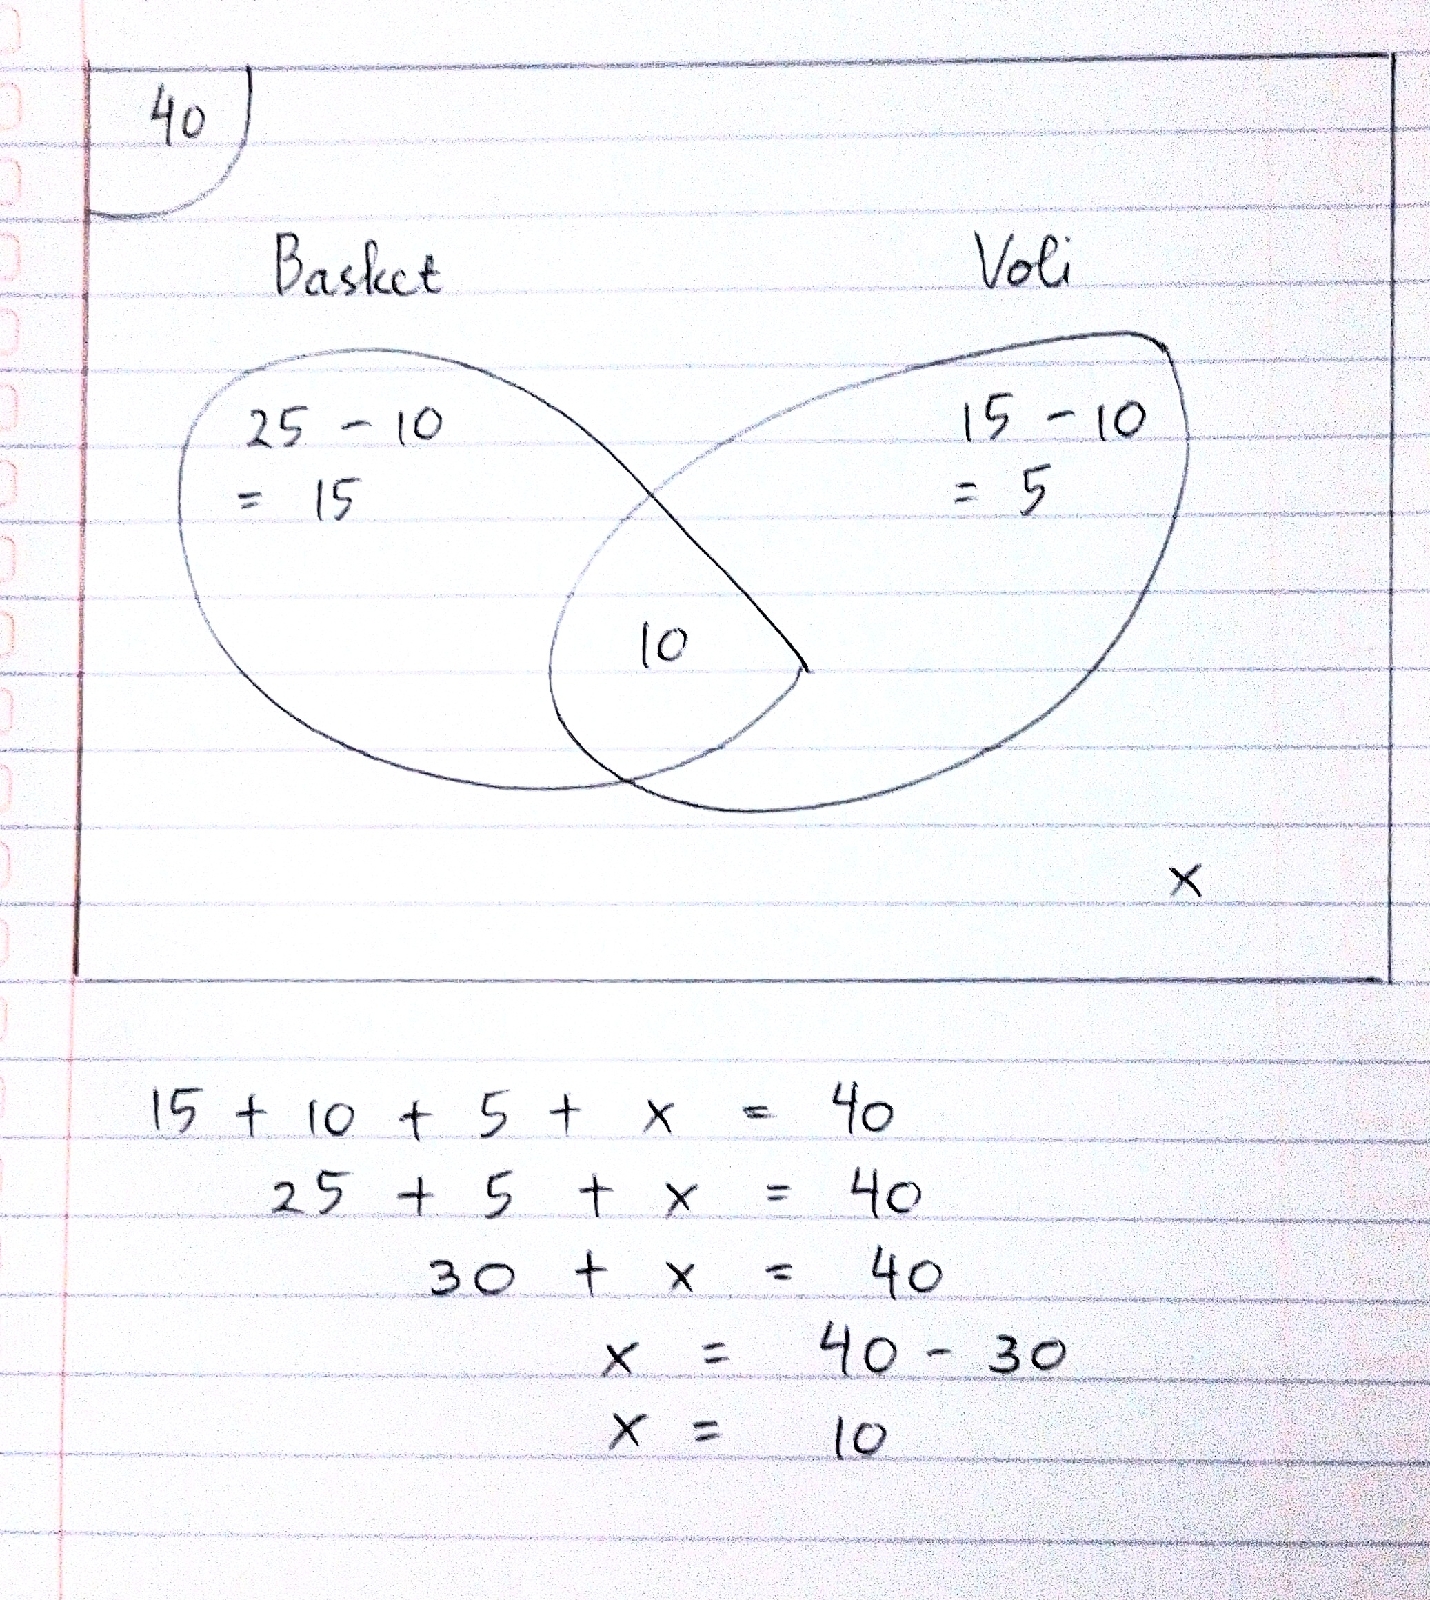 40
Basket
Voli
25 - 10
= 15
15 - 10
= 5
10
x
15 + 10 + 5 + x = 40
25 + 5 + x = 40
30 + x = 40
x = 40 - 30
x = 10